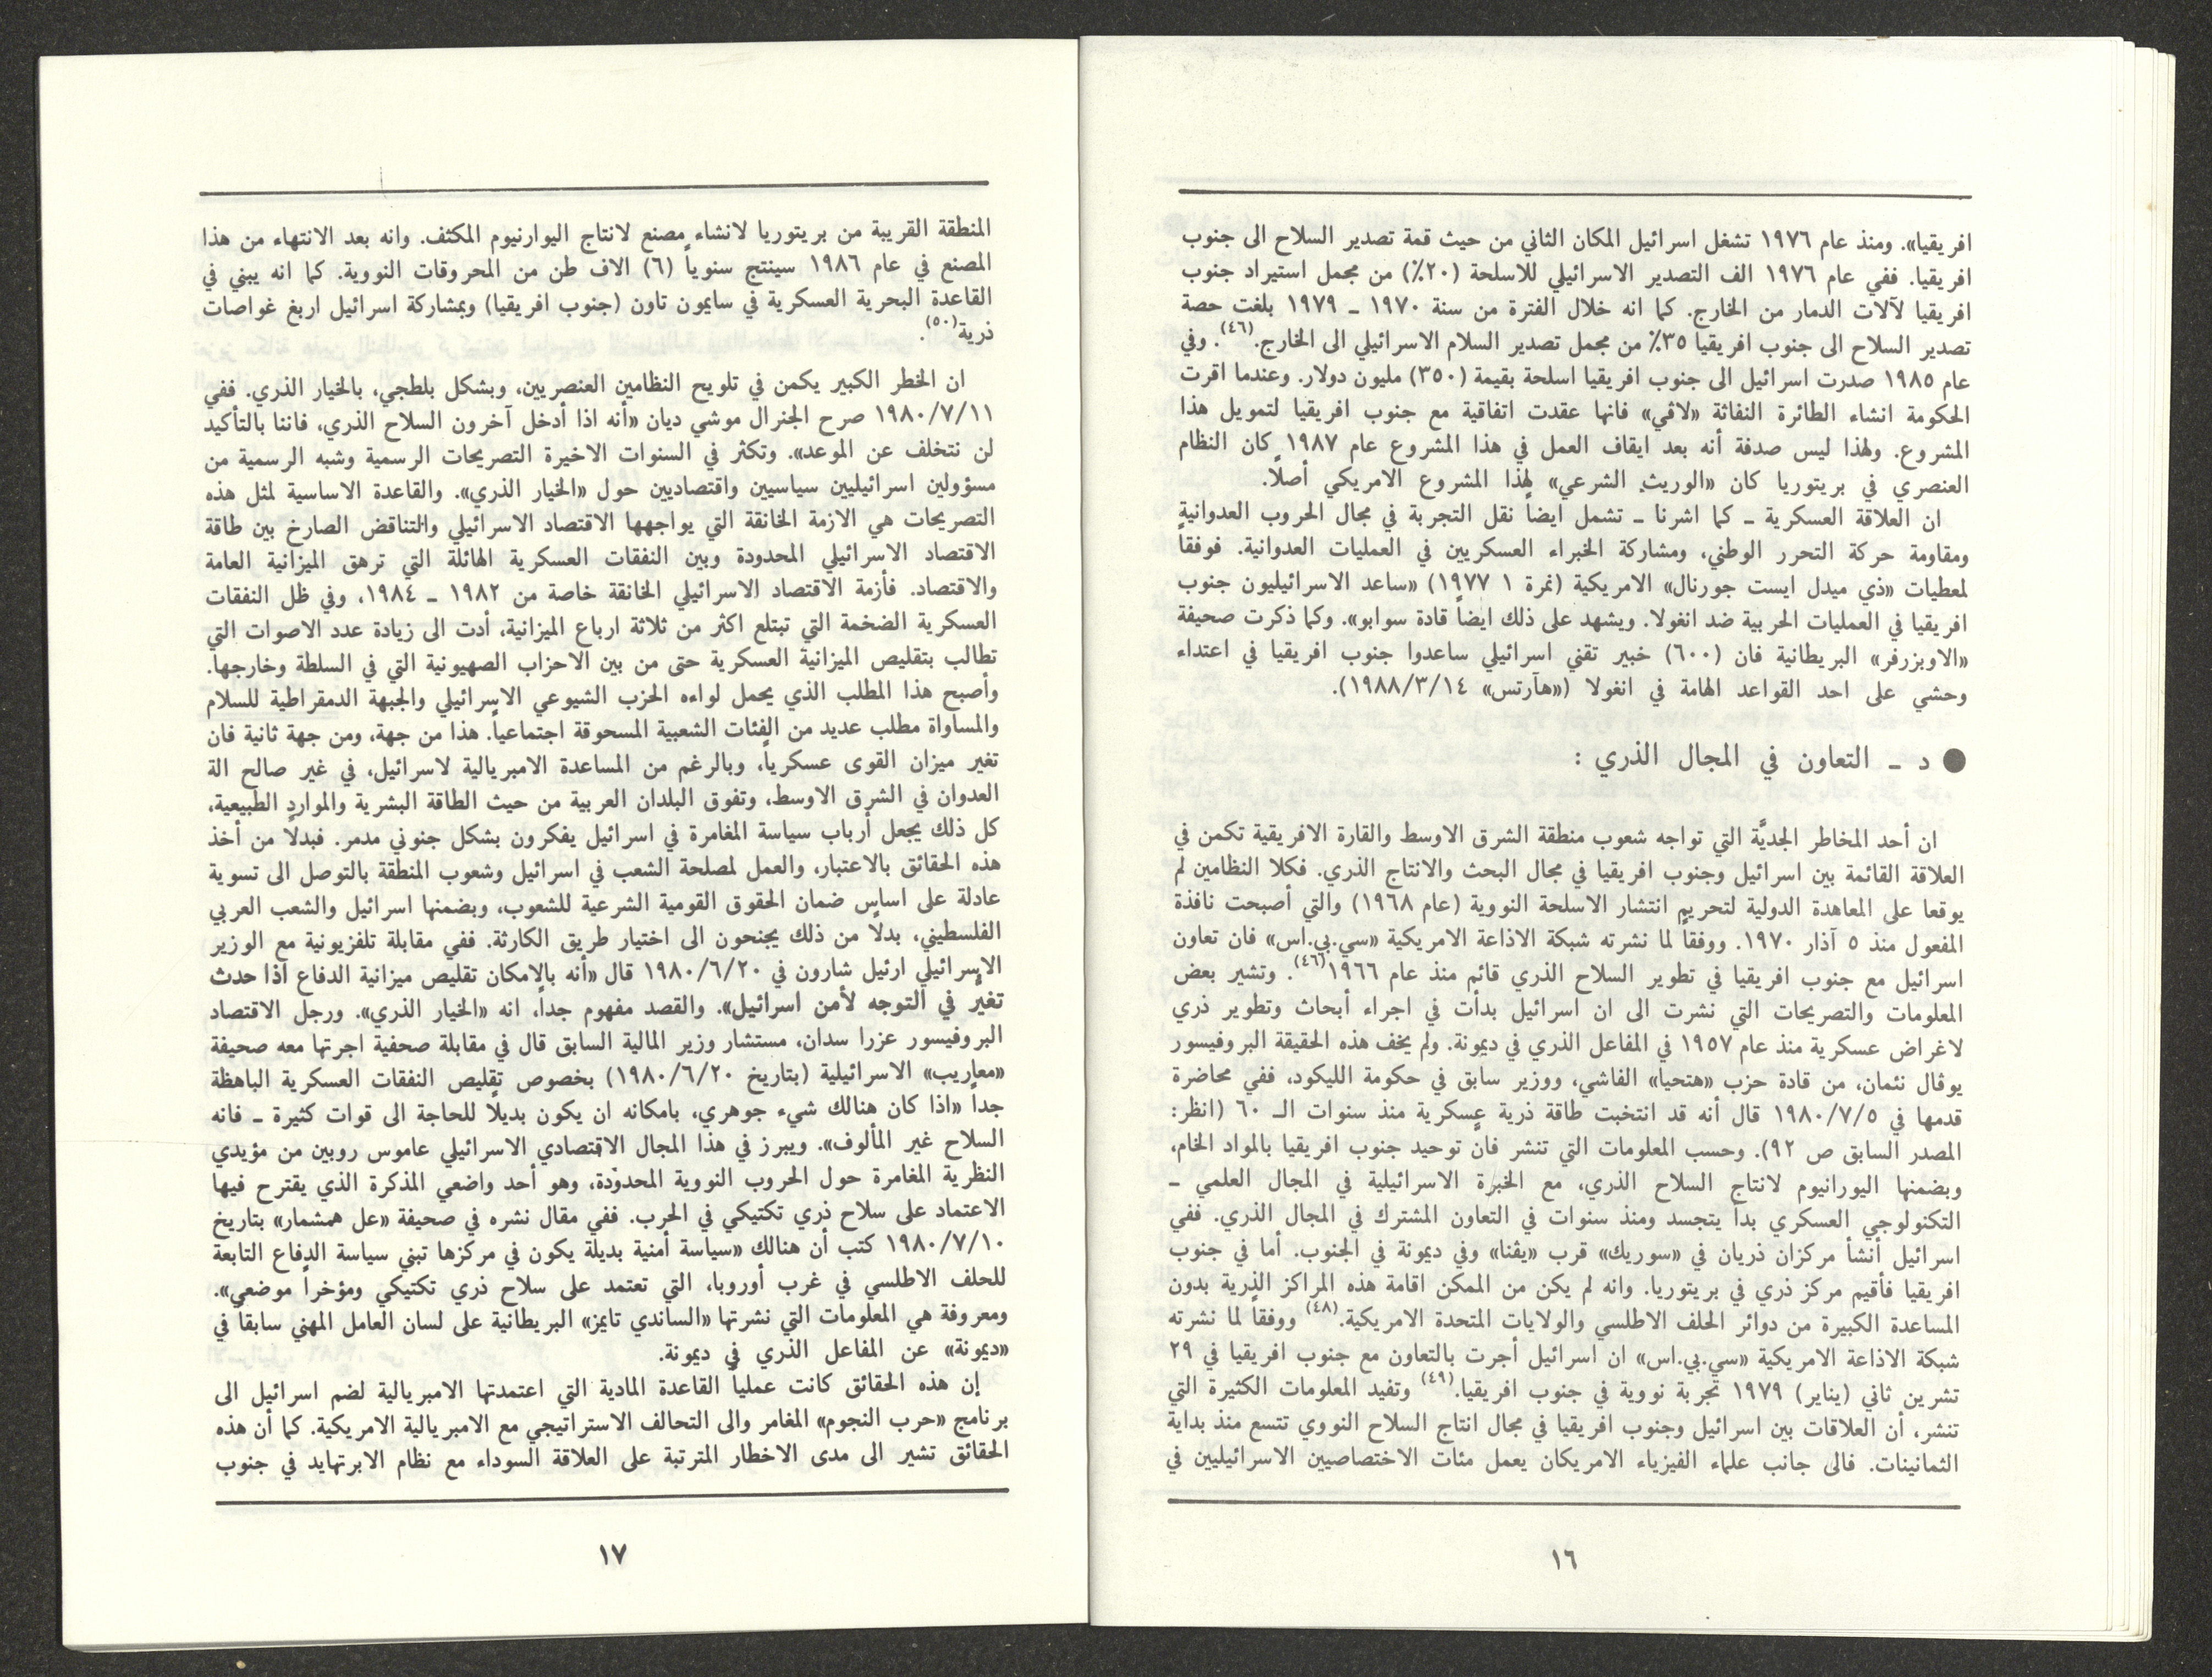 افريقيا». ومنذ عام ١٩٧٦ تشغل اسرائيل المكان الثاني من حيث قمة تصدير السلاح الى جنوب
افريقيا. ففي عام ١٩٧٦ الف التصدير الاسرائيلي للاسلحة (٢٠٪) من مجمل استيراد جنوب
افريقيا لآلات الدمار من الخارج. كما انه خلال الفترة من سنة ١٩٧٠ ـ ١٩٧٩ بلغت حصة
تصدير السلاح الى جنوب افريقيا ٣٥٪ من مجمل تصدير السلام الاسرائيلي الى الخارج.(٤٦). وفي
عام ١٩٨٥ صدرت اسرائيل الى جنوب افريقيا اسلحة بقيمة (٣٥٠) مليون دولار. وعندما اقرت
الحكومة انشاء الطائرة النفاثة «لاڤي» فانها عقدت اتفاقية مع جنوب افريقيا لتمويل هذا
المشروع. ولهذا ليس صدفة أنه بعد ايقاف العمل في هذا المشروع عام ١٩٨٧ كان النظام
العنصري في بريتوريا كان «الوريث الشرعي» لهذا المشروع الامريكي أصلاً.
ان العلاقة العسكرية ـ كما اشرنا ـ تشمل ايضاً نقل التجربة في مجال الحروب العدوانية
ومقاومة حركة التحرر الوطني، ومشاركة الخبراء العسكريين في العمليات العدوانية. فوفقاً
لمعطيات «ذي ميدل ايست جورنال» الامريكية (نمرة ١ ١٩٧٧) «ساعد الاسرائيليون جنوب
افريقيا في العمليات الحربية ضد انغولا. ويشهد على ذلك ايضاً قادة سوابو». وكما ذكرت صحيفة
«الاوبزرفر» البريطانية فان (٦٠٠) خبير تقني اسرائيلي ساعدوا جنوب افريقيا في اعتداء
وحشي على احد القواعد الهامة في انغولا («هآرتس» ١٩٨٨/٣/١٤).
● د ـ التعاون في المجال الذري :
ان أحد المخاطر الجديَّة التي تواجه شعوب منطقة الشرق الاوسط والقارة الافريقية تكمن في
العلاقة القائمة بين اسرائيل وجنوب افريقيا في مجال البحث والانتاج الذري. فكلا النظامين لم
يوقعا على المعاهدة الدولية لتحريم انتشار الاسلحة النووية (عام ١٩٦٨) والتي أصبحت نافذة
المفعول منذ ٥ آذار ١٩٧٠. ووفقاً لما نشرته شبكة الاذاعة الامريكية «سي.بي.اس» فان تعاون
اسرائيل مع جنوب افريقيا في تطوير السلاح الذري قائم منذ عام ١٩٦٦(٤٦). وتشير بعض
المعلومات والتصريحات التي نشرت الى ان اسرائيل بدأت في اجراء أبحاث وتطوير ذري
لاغراض عسكرية منذ عام ١٩٥٧ في المفاعل الذري في ديمونة. ولم يخف هذه الحقيقة البروفيسور
يوڤال نئمان، من قادة حزب «هتحيا» الفاشي، ووزير سابق في حكومة الليكود، ففي محاضرة
قدمها في ١٩٨٠/٧/٥ قال أنه قد انتخبت طاقة ذرية عسكرية منذ سنوات الـ ٦٠ (انظر:
المصدر السابق ص ٩٢). وحسب المعلومات التي تنشر فان توحيد جنوب افريقيا بالمواد الخام،
وبضمنها اليورانيوم لانتاج السلاح الذري، مع الخبرة الاسرائيلية في المجال العلمي ـ
التكنولوجي العسكري بدأ يتجسد ومنذ سنوات في التعاون المشترك في المجال الذري. ففي
اسرائيل أنشأ مركزان ذريان في «سوريك» قرب «يڤنا» وفي ديمونة في الجنوب. أما في جنوب
افريقيا فأقيم مركز ذري في بريتوريا. وانه لم يكن من الممكن اقامة هذه المراكز الذرية بدون
المساعدة الكبيرة من دوائر الحلف الاطلسي والولايات المتحدة الامريكية.(٤٨) ووفقاً لما نشرته
شبكة الاذاعة الامريكية «سي.بي.اس» ان اسرائيل أجرت بالتعاون مع جنوب افريقيا في ٢٩
تشرين ثاني (يناير) ١٩٧٩ تجربة نووية في جنوب افريقيا.(٤٩) وتفيد المعلومات الكثيرة التي
تنشر، أن العلاقات بين اسرائيل وجنوب افريقيا في مجال انتاج السلاح النووي تتسع منذ بداية
الثمانينات. فالى جانب علماء الفيزياء الامريكان يعمل مئات الاختصاصيين الاسرائيليين في
١٦
المنطقة القريبة من بريتوريا لانشاء مصنع لانتاج اليوارنيوم المكثف. وانه بعد الانتهاء من هذا
المصنع في عام ١٩٨٦ سينتج سنوياً (٦) الاف طن من المحروقات النووية. كما انه يبني في
القاعدة البحرية العسكرية في سايمون تاون (جنوب افريقيا) وبمشاركة اسرائيل اربغ غواصات
ذرية(٥٠).
ان الخطر الكبير يكمن في تلويح النظامين العنصريين، وبشكل بلطجي، بالخيار الذري. ففي
١٩٨٠/٧/١١ صرح الجنرال موشي ديان «أنه اذا أدخل آخرون السلاح الذري، فاننا بالتأكيد
لن نتخلف عن الموعد». وتكثر في السنوات الاخيرة التصريحات الرسمية وشبه الرسمية من
مسؤولين اسرائيليين سياسيين واقتصاديين حول «الخيار الذري». والقاعدة الاساسية لمثل هذه
التصريحات هي الازمة الخانقة التي يواجهها الاقتصاد الاسرائيلي والتناقض الصارخ بين طاقة
الاقتصاد الاسرائيلي المحدودة وبين النفقات العسكرية الهائلة التي ترهق الميزانية العامة
والاقتصاد. فأزمة الاقتصاد الاسرائيلي الخانقة خاصة من ١٩٨٢ ـ ١٩٨٤، وفي ظل النفقات
العسكرية الضخمة التي تبتلع اكثر من ثلاثة ارباع الميزانية، أدت الى زيادة عدد الاصوات التي
تطالب بتقليص الميزانية العسكرية حتى من بين الاحزاب الصهيونية التي في السلطة وخارجها.
وأصبح هذا المطلب الذي يحمل لواءه الحزب الشيوعي الاسرائيلي والجبهة الدمقراطية للسلام
والمساواة مطلب عديد من الفئات الشعبية المسحوقة اجتماعياً. هذا من جهة، ومن جهة ثانية فان
تغير ميزان القوى عسكرياً، وبالرغم من المساعدة الامبريالية لاسرائيل، في غير صالح الة
العدوان في الشرق الاوسط، وتفوق البلدان العربية من حيث الطاقة البشرية والموارد الطبيعية،
كل ذلك يجعل أرباب سياسة المغامرة في اسرائيل يفكرون بشكل جنوني مدمر. فبدلاً من أخذ
هذه الحقائق بالاعتبار، والعمل لمصلحة الشعب في اسرائيل وشعوب المنطقة بالتوصل الى تسوية
عادلة على اساس ضمان الحقوق القومية الشرعية للشعوب، وبضمنها اسرائيل والشعب العربي
الفلسطيني، بدلاً من ذلك يجنحون الى اختيار طريق الكارثة. ففي مقابلة تلفزيونية مع الوزير
الاسرائيلي ارئيل شارون في ١٩٨٠/٦/٢٠ قال «أنه بالإمكان تقليص ميزانية الدفاع اذا حدث
تغيرٌ في التوجه لأمن اسرائيل». والقصد مفهوم جداً، انه «الخيار الذري». ورجل الاقتصاد
البروفيسور عزرا سدان، مستشار وزير المالية السابق قال في مقابلة صحفية اجرتها معه صحيفة
«معاريب» الاسرائيلية (بتاريخ ١٩٨٠/٦/٢٠) بخصوص تقليص النفقات العسكرية الباهظة
جداً «اذا كان هنالك شيء جوهري، بامكانه ان يكون بديلاً للحاجة الى قوات كثيرة ـ فانه
السلاح غير المألوف». ويبرز في هذا المجال الاقتصادي الاسرائيلي عاموس روبين من مؤيدي
النظرية المغامرة حول الحروب النووية المحدودة، وهو أحد واضعي المذكرة الذي يقترح فيها
الاعتماد على سلاح ذري تكتيكي في الحرب. ففي مقال نشره في صحيفة «عل همشمار» بتاريخ
١٩٨٠/٧/١٠ كتب أن هنالك «سياسة أمنية بديلة يكون في مركزها تبني سياسة الدفاع التابعة
للحلف الاطلسي في غرب أوروبا، التي تعتمد على سلاح ذري تكتيكي ومؤخراً موضعي».
ومعروفة هي المعلومات التي نشرتها «الساندي تايمز» البريطانية على لسان العامل المهني سابقاً في
«ديمونة» عن المفاعل الذري في ديمونة.
إن هذه الحقائق كانت عملياً القاعدة المادية التي اعتمدتها الامبريالية لضم اسرائيل الى
برنامج «حرب النجوم» المغامر والى التحالف الاستراتيجي مع الامبريالية الامريكية. كما أن هذه
الحقائق تشير الى مدى الاخطار المترتبة على العلاقة السوداء مع نظام الابرتهايد في جنوب
١٧